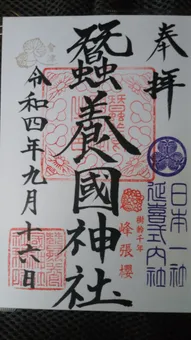 奉拝
日本一社
延喜式内社
樹齢千年
峰張櫻
蠶養國神社
會津
令和四年九月十六日